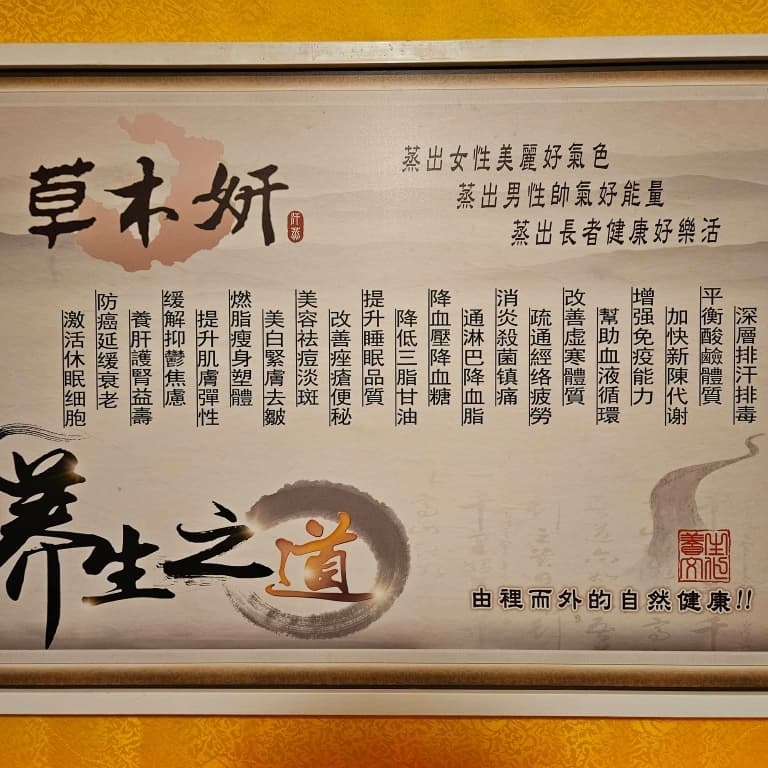 草木妍
汗蒸
蒸出女性美麗好氣色
蒸出男性帥氣好能量
蒸出長者健康好樂活
深層排汗排毒
平衡酸鹼體質
加快新陳代谢
增强免疫能力
幫助血液循環
改善虛寒體質
疏通經络疲勞
消炎殺菌镇痛
通淋巴降血脂
降血壓降血糖
降低三脂甘油
提升睡眠品質
改善痤瘡便秘
美容袪痘淡斑
美白緊膚去皺
燃脂瘦身塑體
提升肌膚彈性
缓解抑鬱焦慮
養肝護腎益壽
防癌延缓衰老
激活休眠细胞
养生之道
由裡而外的自然健康!!